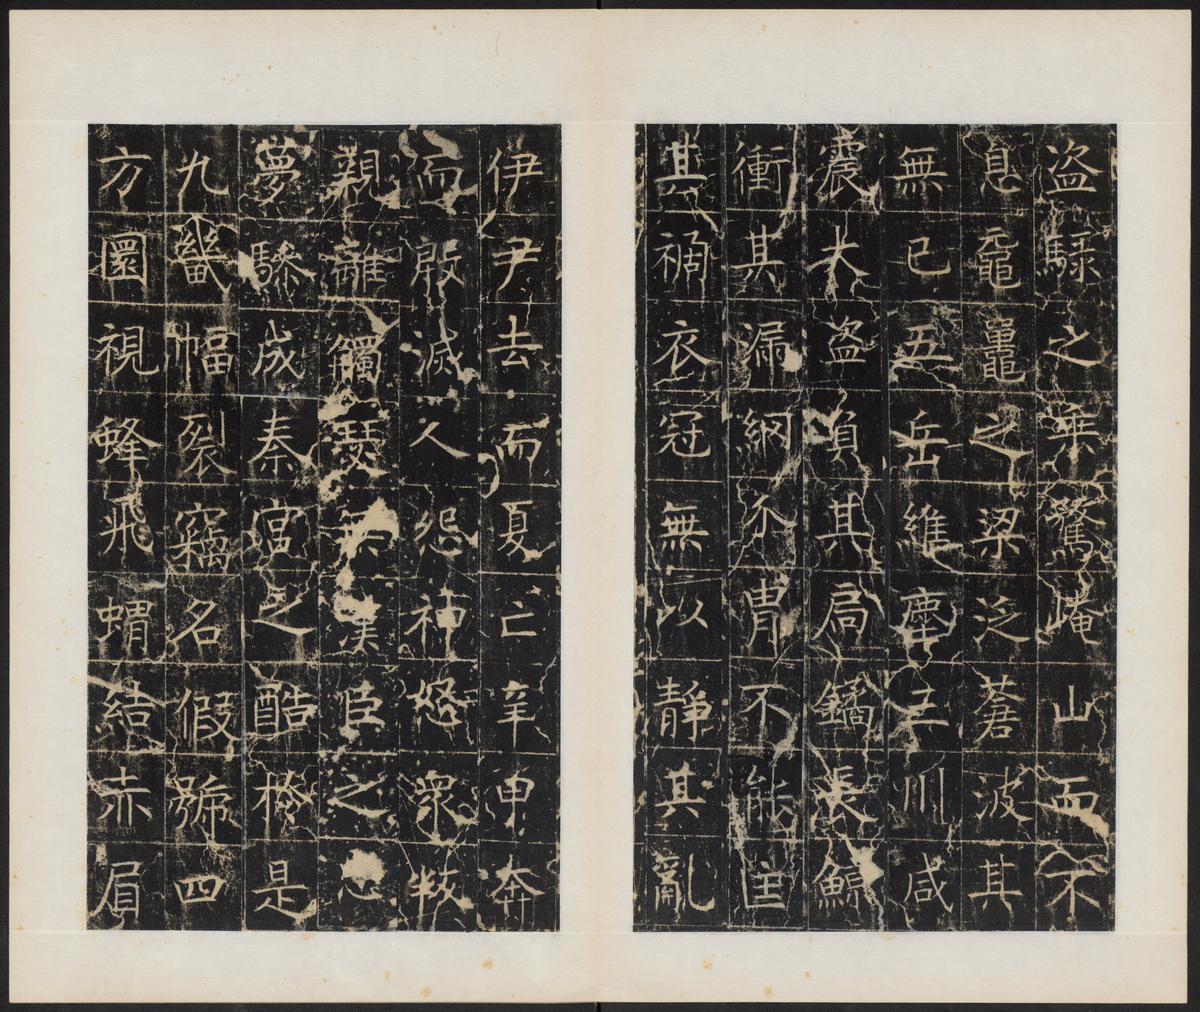 盜騄之乗驚崦山而不
息黿鼉之梁泛蒼波其
無已五岳維塵三川咸
震大盜負其扃鐍長鯨
衝其漏網介胄不能匡
其禍衣冠無以靜其亂
伊尹去而夏亡辛甲奔
而殷滅人怨神怒衆叛
親離觸瑟罕漢臣之忠
夢驂成秦宮之酷於是
九畿幅裂竊名假號四
方圜視蜂飛蝟結赤眉